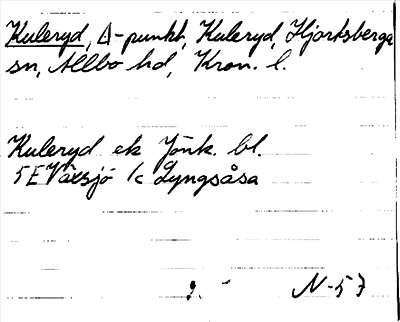 Kuleryd, Δ-punkt, Kuleryd, Hjortsberga
sn, Allbo hd, Kron. l.
Kuleryd ek Jönk. bl.
5E Växsjö 1c Lyngsåsa
N-57